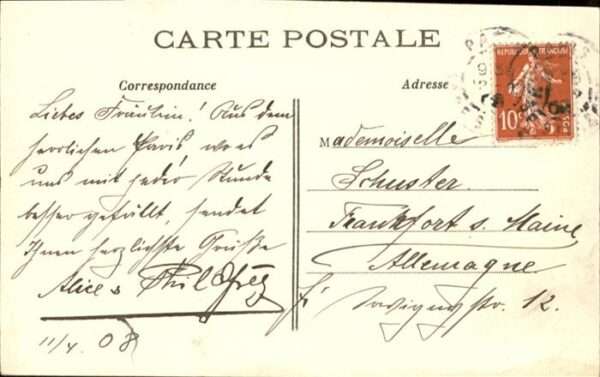 CARTE POSTALE
Correspondance
Liebes Fräulein! Aus dem
herrlichen Paris, wo es
uns mit jeder Stunde
besser gefällt, sendet
Ihnen herzlichste Grüße
Alice & Phil
11/4 08
Adresse
Mademoiselle
Schuster
Frankfort s. Maine
Allemagne
Savignystr. 12.
REPUBLIQUE FRANÇAISE
10c
POSTES